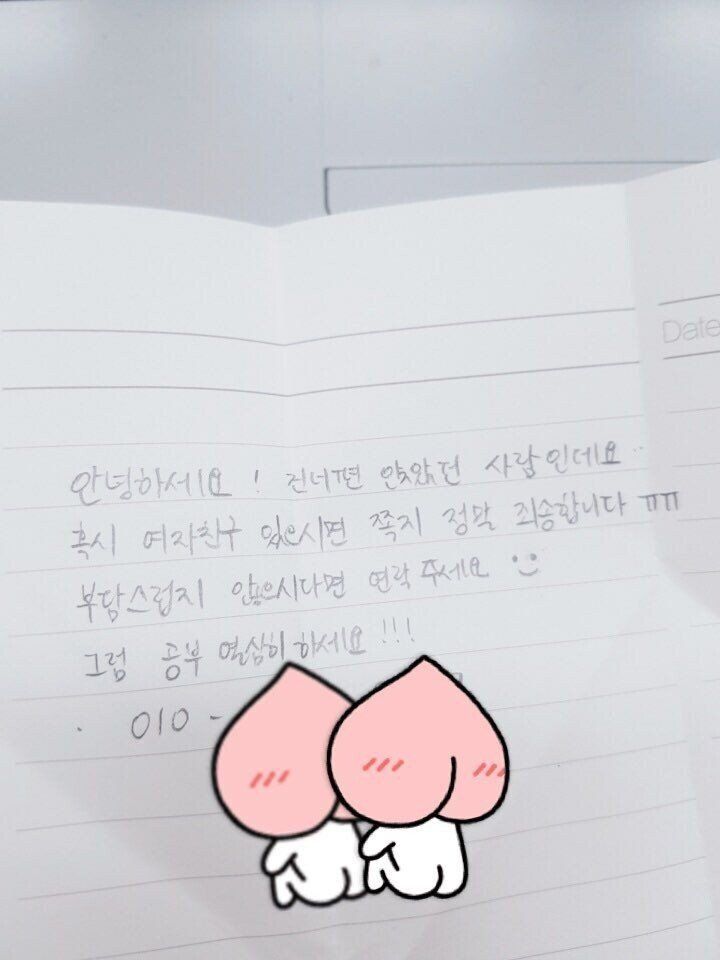 Date
안녕하세요! 건너편 앉았던 사람인데요..
혹시 여자친구 있으시면 쪽지 정말 죄송합니다 ㅠㅠ
부담스럽지 않으시다면 연락주세요 :)
그럼 공부 열심히 하세요!!!
· 010 -